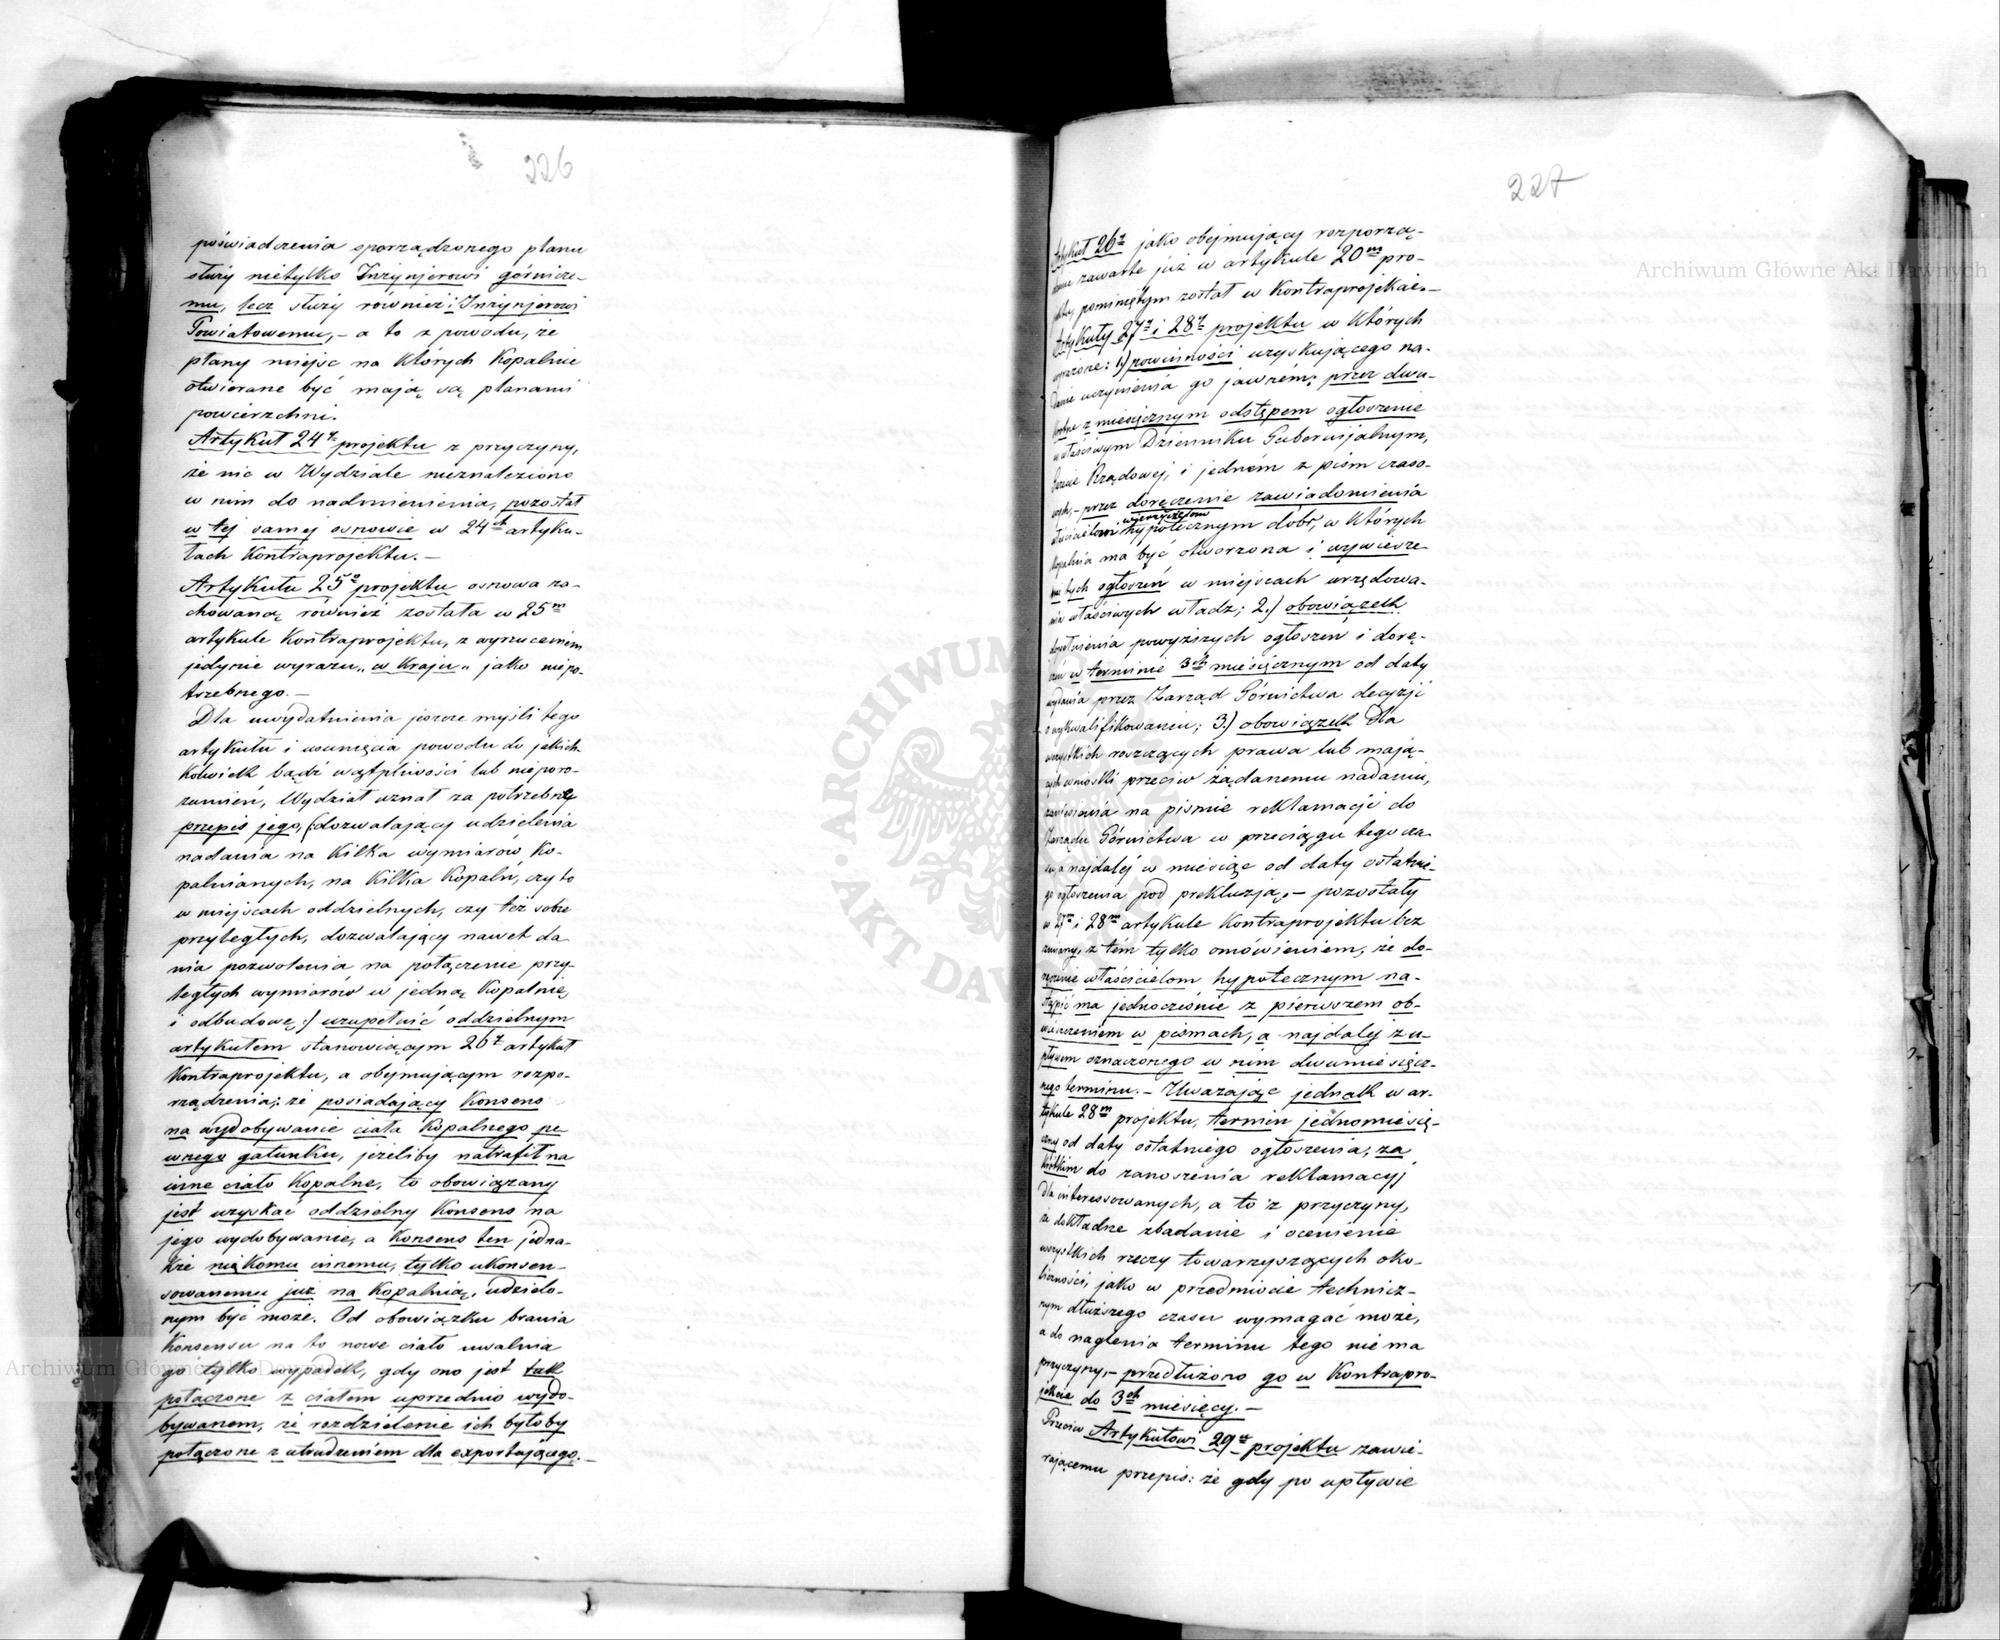 226
poświadczenia sporządzonego planu
służy nietylko Inżynjerowi górnicze-
mu, lecz służy również i Inżynjerowi
Powiatowemu, - a to z powodu, że
plany miejsc na których Kopalnie
otwierane być mają są planami
powierzchni.
Artykuł 24ty projektu z przyczyny,
że nic w Wydziale nieznaleziono
w nim do nadmienienia, pozostał
w tej samej osnowie w 24ch artyku-
łach Kontraprojektu. -
Artykułu 25o projektu osnowa za-
chowaną również została w 25m
artykule Kontraprojektu, z wyrzuceniem
jedynie wyrazu „w Kraju" jako niepo-
trzebnego. -
Dla uwydatnienia jeszcze myśli tego
artykułu i usunięcia powodu do jakich-
kolwiek bądź wątpliwości lub nieporo-
zumień, Wydział uznał za potrzebny
przepis jego, (: dozwalający udzielenia
nadania na Kilka wymiarów Ko-
palnianych, na Kilka Kopalń, czy to
w miejscach oddzielnych, czy też sobie
przyległych, dozwalający nawet da-
nia pozwolenia na połączenie przy-
ległych wymiarów w jedną Kopalnię
i odbudowę :) uzupełnić oddzielnym
artykułem stanowiącym 26ty artykuł
Kontraprojektu, a obejmującym rozpo-
rządzenia; że posiadający Konsens
na wydobywanie ciała Kopalnego pe-
wnego gatunku, jeżeliby natrafił na
inne ciało Kopalne, to obowiązany
jest uzyskać oddzielny Konsens na
jego wydobywanie, a Konsens ten jedna-
kże nikomu innemu, tylko ukonsen-
sowanemu już na Kopalnią, udzielo-
nym być może. Od obowiązku brania
Konsensu na to nowe ciało uwalnia
go tylko wypadek, gdy ono jest tak
połączone z ciałem uprzednio wydo-
bywanem, że rozdzielenie ich byłoby
połączone z utrudzeniem dla exportującego. -
227
Artykuł 26ty jako obejmujący rozporzą-
dzenia zawarte już w artykule 20m pro-
jektu, pominiętym został w Kontraprojekcie. -
Artykuły 27y i 28y projektu w których
wyrażone: 1) powinności uzyskującego na-
danie uczynienia go jawném; przez dwu-
krotne z miesięcznym odstępem ogłoszenie
w właściwym Dzienniku Gubernijalnym,
Gazecie Rządowej, i jedném z pism czaso-
wych, - przez doręczenie zawiadomienia
wszystkim
właścicielom hypotecznym dóbr, w których
Kopalnia ma być otworzona i wywiesze-
nie tych ogłoszeń w miejscach urzędowa-
nia właściwych władz; 2.) obowiązek
dopełnienia powyższych ogłoszeń i dorę-
czeń w terminie 3ch miesięcznym od daty
wydania przez Zarząd Górnictwa decyzji
o wykwalifikowaniu; 3.) obowiązek dla
wszystkich roszczących prawa lub mają-
cych wnioski przeciw żądanemu nadaniu,
zaniesienia na piśmie reklamacji do
Zarządu Górnictwa w przeciągu tego cza-
su, a najdaléj w miesiąc od daty ostatnie-
go ogłoszenia pod prekluzją, - pozostały
w 27m i 28m artykule Kontraprojektu bez
zmiany, z tém tylko omówieniem, że do-
ręczenie właścicielom hypotecznym na-
stąpić ma jednocześnie z pierwszem ob-
wieszczeniem w pismach, a najdalej z u-
pływem oznaczonego w nim dwumiesięcz-
nego terminu. - Uważając jednak w ar-
tykule 28m projektu, termin jednomiesię-
czny od daty ostatniego ogłoszenia, za
krótkim do zanoszenia reklamacyj
dla interessowanych, a to z przyczyny,
że dokładne zbadanie i ocenienie
wszystkich rzeczy towarzyszących oko-
liczności, jako w przedmiocie technicz-
nym dłuższego czasu wymagać może,
a do naglenia terminu tego niema
przyczyny, - przedłużono go w Kontrapro-
jekcie do 3ch miesięcy. -
Przeciw Artykułowi 29u projektu zawie-
rającemu przepis: że gdy po upływie
Archiwum Główne Akt Dawnych
Archiwum Główne Akt Dawnych